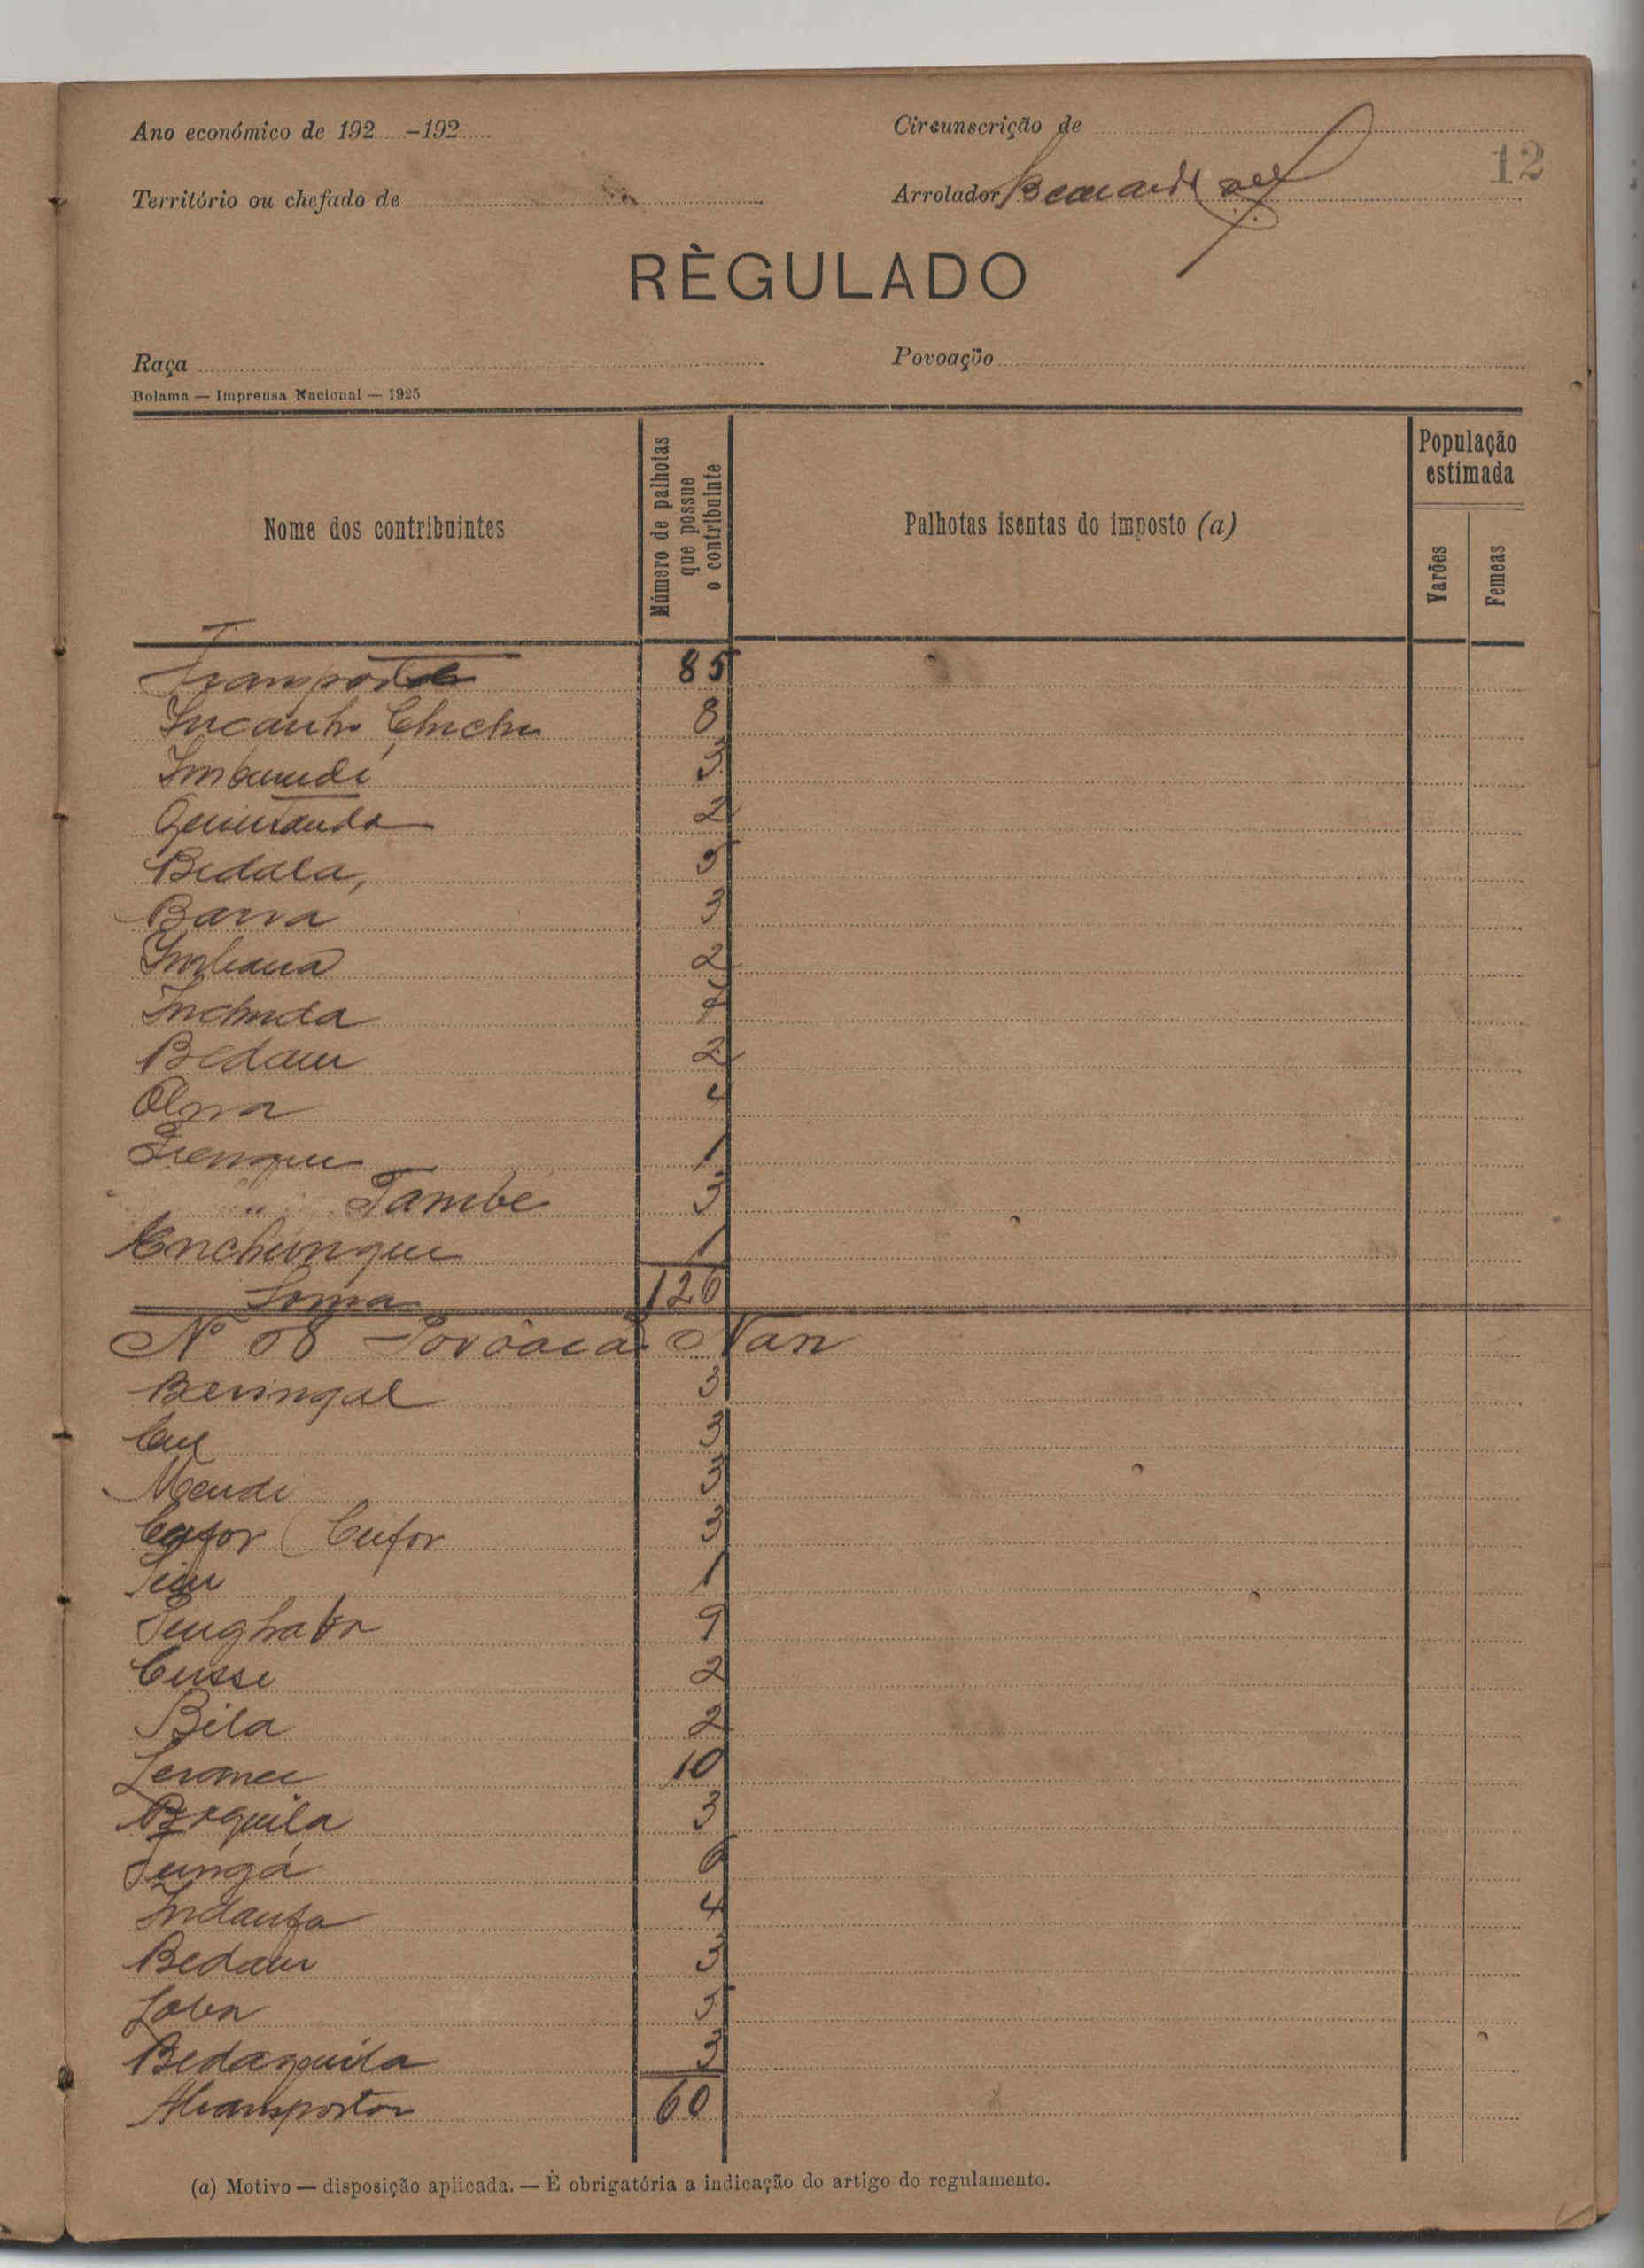 Ano económico de 192 -192
Circunscrição de
12
Território ou chefado de
Arrolador
RÈGULADO
Raça
Povoação
Bolama — Imprensa Nacional — 1925
Nome dos contribuintes
Número de palhotas que possue o contribuinte
Palhotas isentas do imposto (a)
População estimada
Varões
Femeas
Transporte 85
Incanho Chichu 8
Imbundi 3
2
Bidala, 5
Barra 3
Imbaná 2
Inchuda
Bedam 2
4
1
" Tambe 3
Enchungue 1
Soma 126
Nº 08 Povoaca Nan
Beningal 3
Cul 3
Mendi 3
Cafor (Cufor 3
1
9
Cusse 2
Bila 2
10
3
Tungá 6
Indanfa 4
Bedam 3
5
Bedanquila 3
Atransportar 60
(a) Motivo — disposição aplicada. — È obrigatória a indicação do artigo do regulamento.